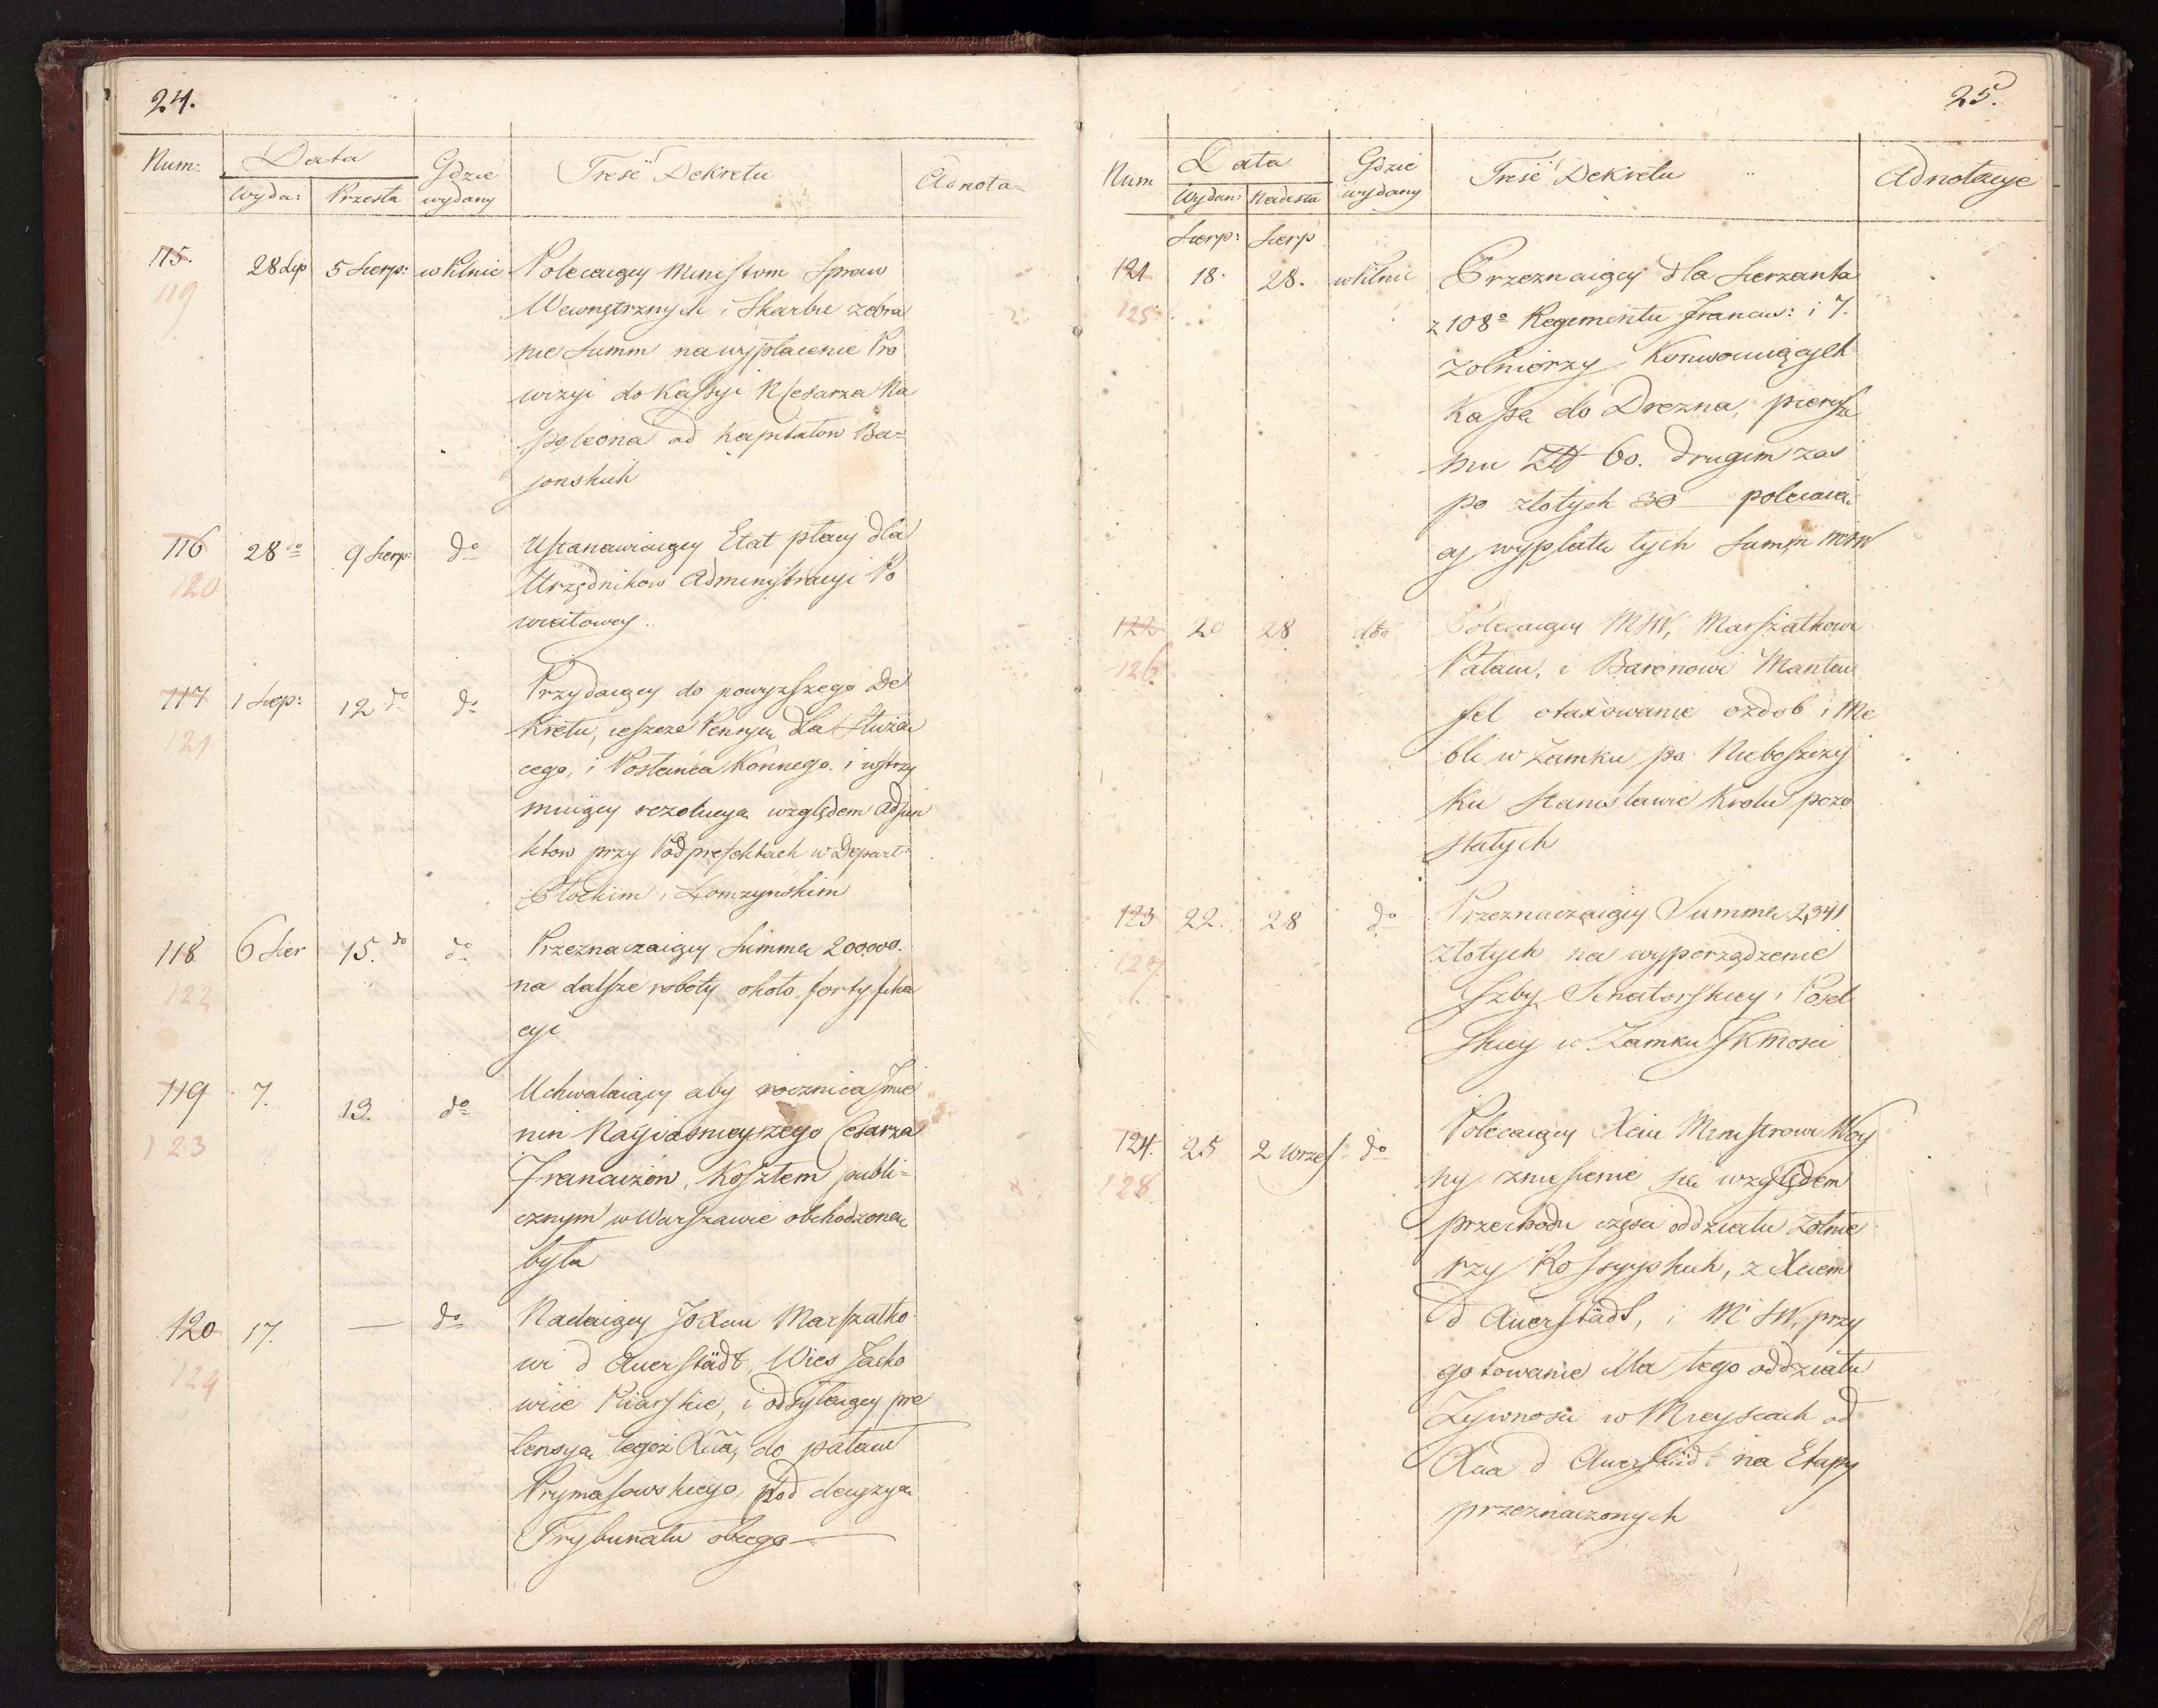 24.
Num: Data Gdzie wydany Treść Dekretu Adnota=
Wyda: Przesła
115. 28 Lip 5 Sierp: w Pilnic Polecaiący Ministrom Spraw
119 Wewnętrznych i Skarbu zebra
nie Summ na wypłacenie Pro
wizyi do Kassyi N Cesarza Na
poleona od Kapitałow Ba=
jonskich
116 28 do 9 Sierp: do Ustanawiaiący Etat płacy dla
120 Urzędnikow Administracyi Po
wiatowey.
117 1 Sierp: 12 do do Przydaiący do powyzszego De
121 kretu, ieszcze Pensyą dla Słuzą
cego, i Posłańca Konnego. i wstrzy
muiący rezolucyą względem Adjun
ktow przy Podprefektach w Depart:
Płockim i Łomzynskim
118 6 Sier 15. do do Przeznaczaiący Summę 200,000.
122 na dalsze roboty około fortyfika
cyi
119 7. 13. do Uchwalaiący aby rocznica Jmie
123 nin Nayiasnieyszego Cesarza
Francuzów, Kosztem publi=
cznym w Warszawie obchodzoną
była
120 17. — do Nadaiący JoXciu Marszałko
124 wi d Auerstädt, Wies Jacko
wice Piarskie, i odsyłaiący pre
tensyą tegoż Xcia, do pałacu
Prymasowskiego, pod decyzyą
Trybunału obcego —
25.
Num Data Gdzie wydany Treść Dekretu Adnotacye
Wydan: Nadesła
Sierp: Sierp
121 18. 28. w Pilnic Przeznaiący dla Sierzanta
125 z 108o Regimentu Francus: i 7.
zolnierzy Konwoiuiących
Kassę do Drezna, pierwsze
mu Złt 60. drugim zas
po złotych 30 — polecaią
cy wypłatę tych Summ MSW
122 20 28 dto Polecaiący MSW, Marszałkowi
126 Pałacu, i Baronowi Manteu
fel otaxowanie ozdob i Me
bli w Zamku po Nieboszczy
ku Stanisławie Krolu pozo
stałych
123 22. 28 do Przeznaczaiący Summę 2,341
127 złotych na wyporządzenie
Jzby Senatorskiey i Posel
skiey w Zamku JKMosci
124. 25 2 Wrześ do Polecaiący Xciu Ministrowi Woy
128 ny zniesienie się względem
przechodu części oddziału Zołnie
rzy Rossyyskich, z Xciem
d Auerstädt, i MSW, przy
gotowanie dla tego oddziału
Zywnosci w Mieyscach od
Xcia d Auerstädt na Etapy
przeznaczonych